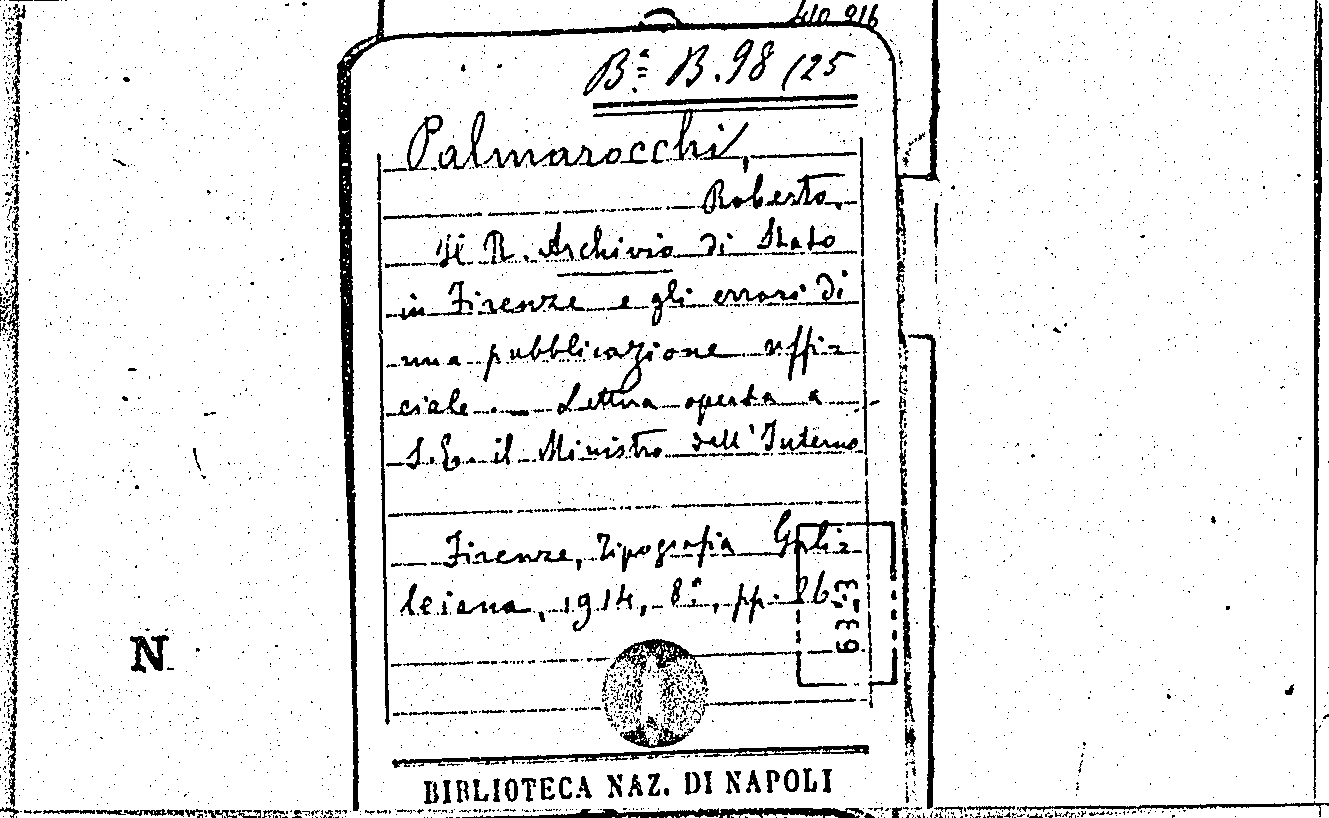 410 916
Bª B.98 (25
Palmarocchi,
Roberto.
Il R. Archivio di Stato
in Firenze e gli errori di
una pubblicazione uffi=
ciale. – Lettera aperta a
S.E. il Ministro dell'Interno
Firenze, Tipografia Gali=
leiana, 1914, 8º, pp. 26.
63-3
N
BIBLIOTECA NAZ. DI NAPOLI